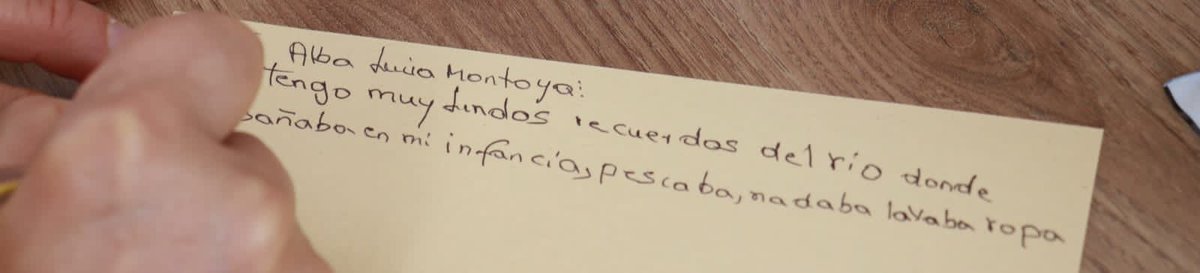 Alba Lucia Montoya:
tengo muy lindos recuerdos del rio donde
bañaba en mi infancia, pescaba, nadaba lavaba ropa